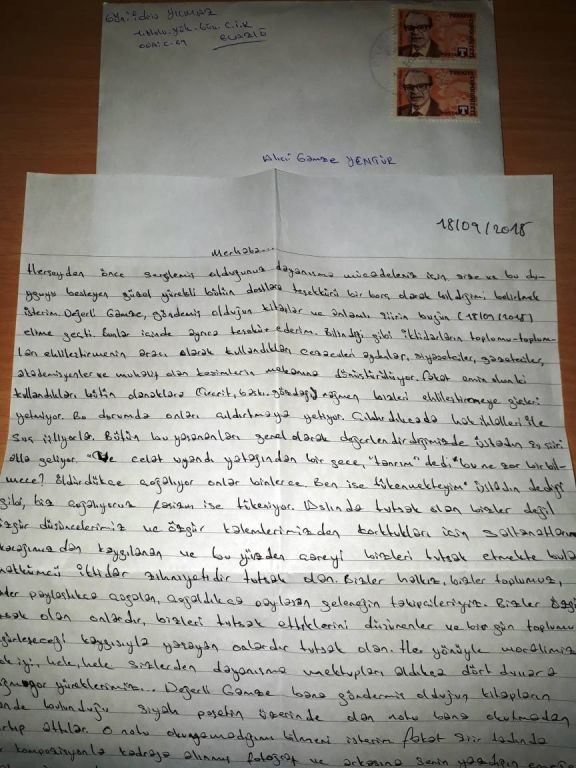 Gön: İdris YILMAZ
1.Nolu. Yük. Güv. C.İ.K
ODA: C-69
ELAZIĞ
TÜRKİYE
CUMHURİYETİ
TÜRKİYE
CUMHURİYETİ
Alıcı Gamze YENGÜR
18/09/2018
Merhaba...
Herşeyden önce sergilemiş olduğunuz dayanışma mücadeleniz için size ve bu du-
yguyu besleyen güzel yürekli bütün dostlara teşekkürü bir borç olarak bildiğimi belirtmek
isterim. Değerli Gamze, göndermiş olduğun kitaplar ve anlamlı şiirin bugün (18/09/2018)
elime geçti. Bunlar içinde ayrıca teşekkür ederim. Bilindiği gibi iktidarların toplumu-toplum-
ları ehlileştirmenin aracı olarak kullandıkları cezaevleri aydınlar, siyasetciler, gazeteciler,
akademisyenler ve muhalif olan kesimlerin mekanına dönüştürülüyor. Fakat emin olun ki
kullandıkları bütün olanaklara (Tecrit, baskı, gözdağı) rağmen bizleri ehlileştirmeye güçleri
yetmiyor. Bu durumda onları çıldırtmaya yetiyor. Çıldırdıkcada hak ihlalleri ile
suç işliyorlar. Bütün bu yaşananları genel olarak değerlendirdiğimizde üstadın şu şiiri
akla geliyor. "Ve celat uyandı yatağından bir gece, "tanrım" dedi "bu ne zor bir bil-
mece? Öldürdükce çoğalıyor onlar binlerce. Ben ise tükenmekteyim" Üstadın dediği
gibi, biz çoğalıyoruz faşizm ise tükeniyor. Aslında tutsak olan bizler değil
özgür düşüncelerimiz ve özgür kalemlerimizden korktukları için saltanatların
kaygılanan ve bu yüzden çareyi bizleri tutsak etmekte bula
iktidar zihniyetidir tutsak olan. Bizler halkız, bizler toplumuz,
paylaştıkca azalan, çoğaldıkca geleneğin takipcileriyiz. Bizler özgü
olan onlardır, bizleri tutsak ettiklerini düşünenler ve bir gün toplumu
kaygısıyla yaşayan onlardır tutsak olan. Her yönüyle moralimiz
iyi, hele, hele sizlerden dayanışma mektupları aldıkca dört duvara
yüreklerimiz... Değerli Gamze bana göndermiş olduğun kitapların
bulunduğu siyah poşetin üzerinde olan notu bana okutmadan
attılar. O notu okuyamadığımı bilmeni isterim fakat şiir tadında
kompozisyonla kadraja alınmış fotoğraf ve arkasına senin yazdığın